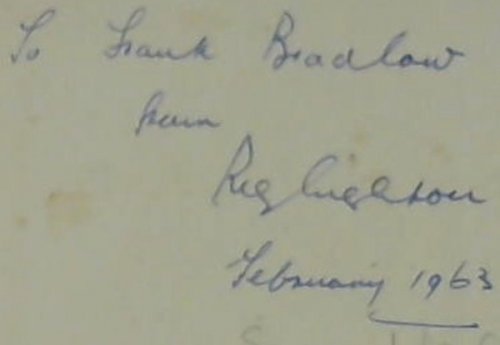 To Frank Bradlow
from
Reg Lighton
February 1963